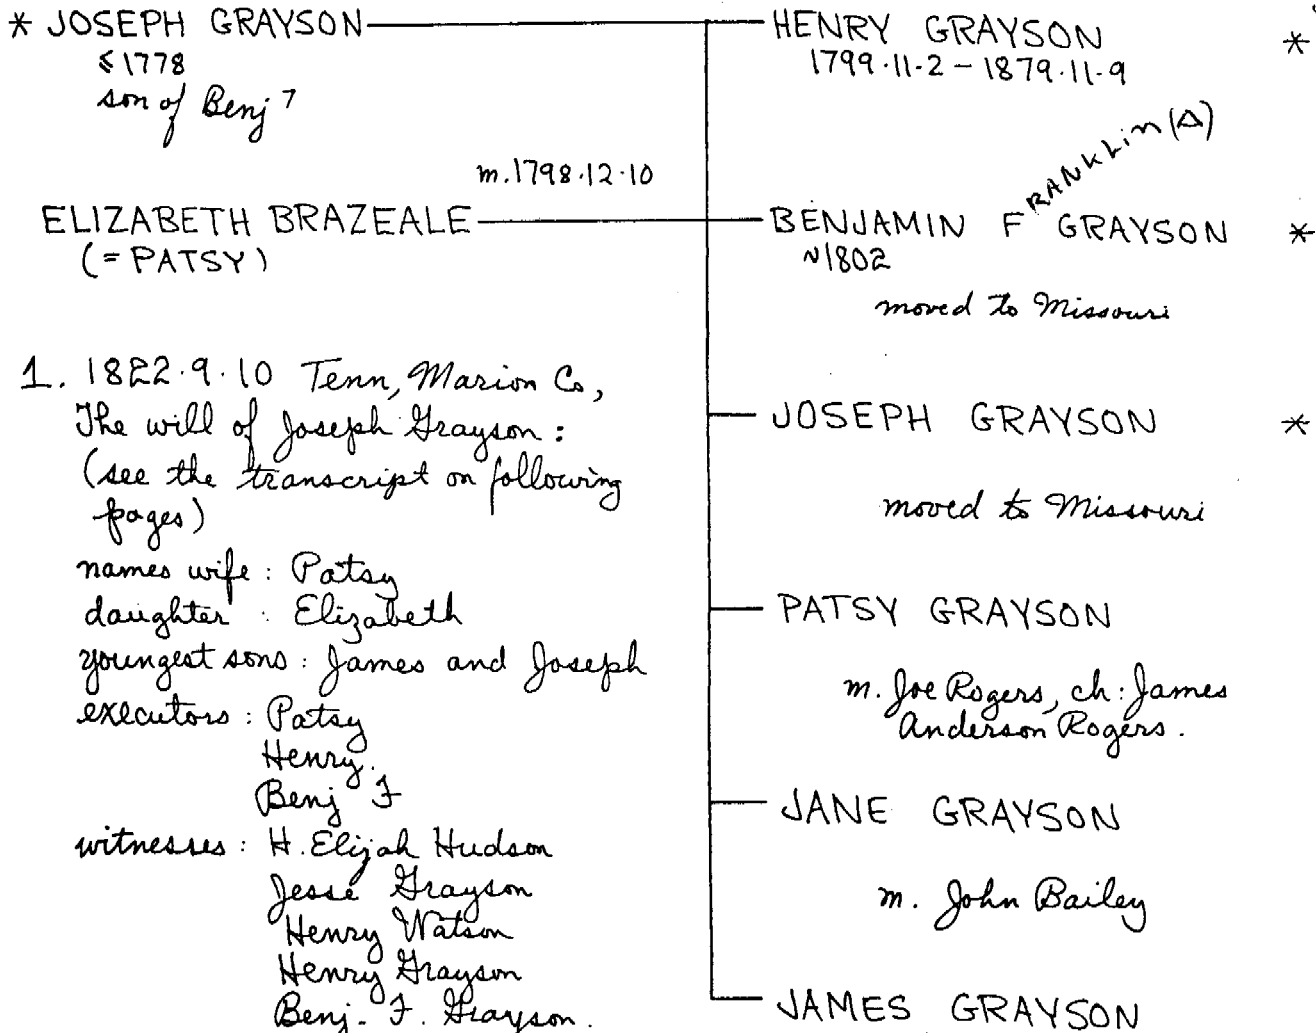 * JOSEPH GRAYSON
≤1778
son of Benj 7
m. 1798.12.10
ELIZABETH BRAZEALE
(= PATSY)
1. 1822.9.10 Tenn, Marion Co,
The will of Joseph Grayson:
(see the transcript on following
pages)
names wife: Patsy
daughter: Elizabeth
youngest sons: James and Joseph
executors: Patsy
Henry.
Benj F
witnesses: H. Elijah Hudson
Jesse Grayson
Henry Watson
Henry Grayson
Benj. F. Grayson.
HENRY GRAYSON *
1799.11.2 - 1879.11.9
BENJAMIN FRANKLIN (A) GRAYSON *
~1802
moved to Missouri
JOSEPH GRAYSON *
moved to Missouri
PATSY GRAYSON
m. Joe Rogers, ch: James
Anderson Rogers.
JANE GRAYSON
m. John Bailey
JAMES GRAYSON